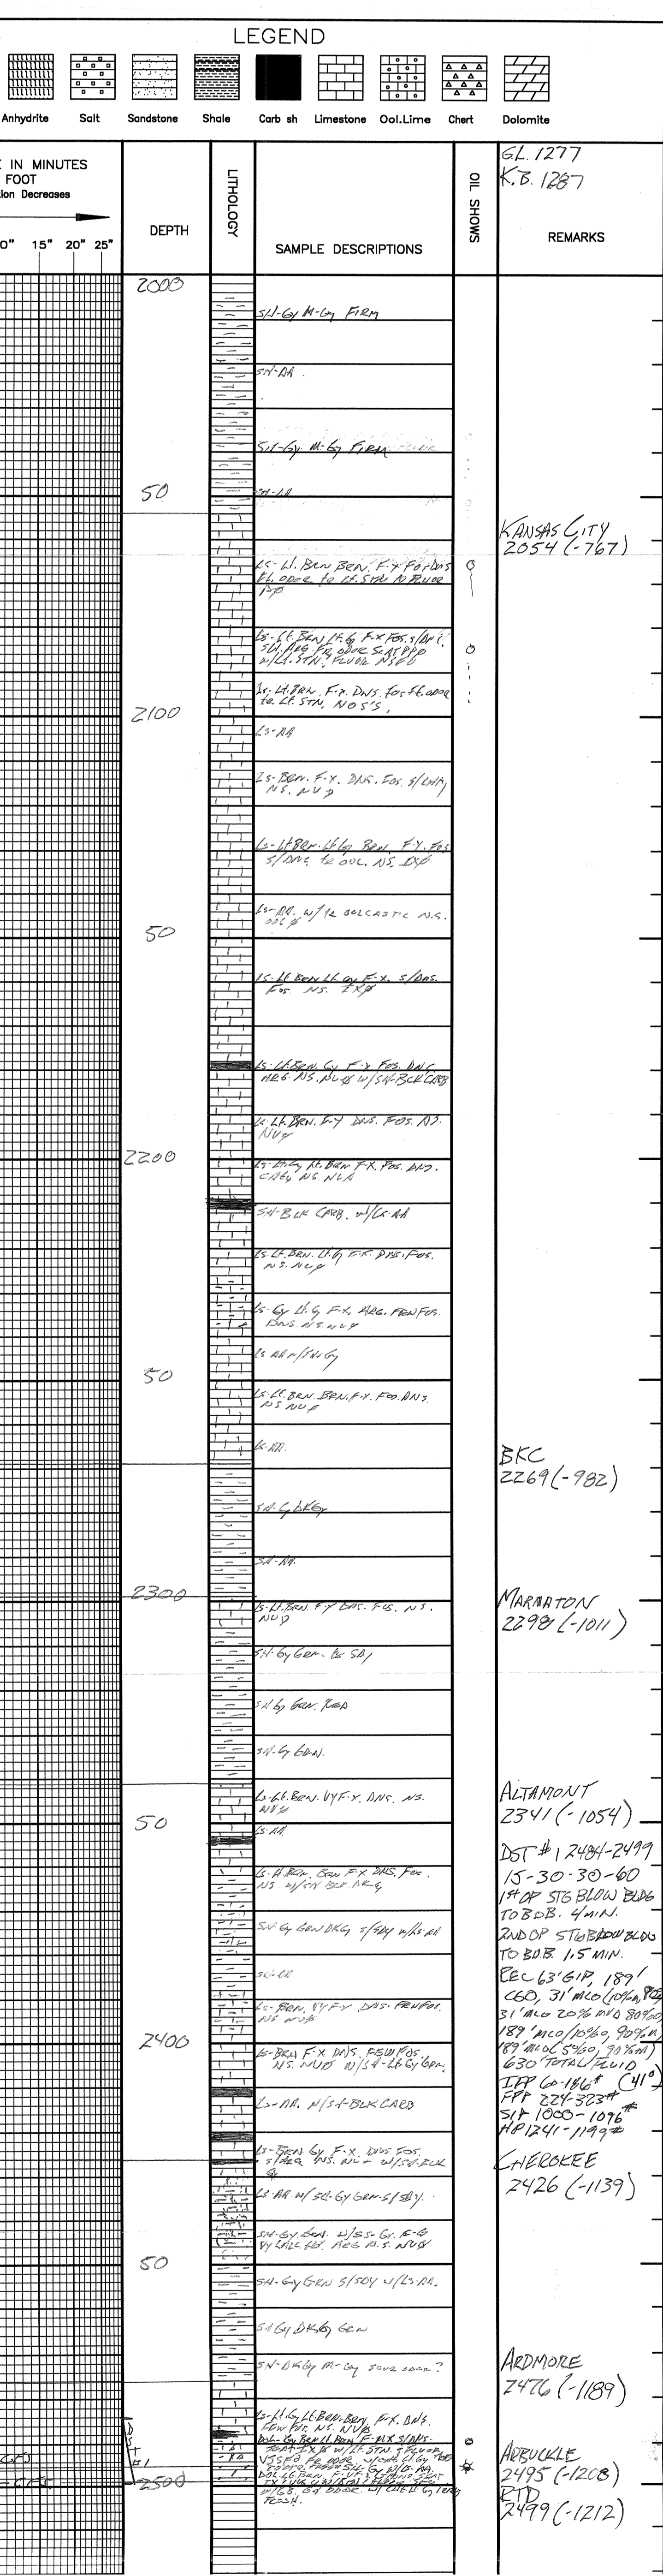 LEGEND
Anhydrite Salt Sandstone Shale Carb sh Limestone Ool.Lime Chert Dolomite
IN MINUTES
FOOT
ion Decreases
0" 15" 20" 25"
DEPTH
LITHOLOGY
SAMPLE DESCRIPTIONS
OIL SHOWS
GL. 1277
K.B. 1287
REMARKS
2000
SH-Gy M-Gy FIRM
SH-AA
SH-Gy M-Gy FIRM
50
SH-AA
KANSAS CITY
2054 (-767)
LS-Lt. BRN BRN. F-X FOS DNS
Ft. ODOR tr Lt. STN N FLUOR
LS-Lt. BRN Lt. G F-X FOS. S/DNS
ARG FR ODOR SCAT PPØ
W/Lt. STN, FLUOR NSFO
LS-Lt. BRN. F-X. DNS. FOS Ft. ODOR
tr Lt. STN. NO S'S.
2100
LS-AA
LS-BRN. F-X. DNS. FOS. S/CHKY
NS. NVØ
LS-Lt BRN. Lt Gy BRN F-X. FOS
S/DNS tr OOL NS. IXØ
50
LS-AA. W/tr OOLCASTIC N.S.
OOCØ
LS-Lt BRN Lt Gy F-X. S/DNS.
FOS. NS. IXØ
LS-Lt. BRN. Gy F-X FOS. DNS
ARG. NS. NVØ W/SH-BLK CARB
LS-Lt. BRN. F-X DNS. FOS. NS.
NVØ
2200
LS-Lt. Gy Lt. BRN F-X. FOS. DNS.
NS. NVØ
SH-BLK CARB. W/LS-AA
LS-Lt. BRN. Lt. G F-X. DNS. FOS.
NS. NVØ
LS-Gy Lt. G F-X, ARG. FEW FOS.
DNS. NS NVØ
LS AA W/SH-Gy
50
LS-Lt. BRN. BRN. F-X. FOS. DNS.
NS NVØ
LS-AA.
BKC
2269 (-982)
SH-G DKGy
SH-AA.
2300
MARMATON
2298 (-1011)
LS-Lt. BRN F-X DNS. FOS. NS.
NVØ
SH-Gy GRN-
SH Gy GRN. RED
SH-Gy GRN.
ALTAMONT
2341 (-1054)
LS-Lt. BRN. VYF-X. DNS. NS.
NVØ
50
LS-AA
DST #1 2484-2499
15-30-30-60
1st OP STG BLOW BLDG
TO BOB. 4 MIN.
2ND OP STG BLOW BLDG
TO BOB. 1.5 MIN.
REC 63' GIP, 189'
CGO, 31' MCO (10%M,
31' MCO 20% MUD 80%O,
189' MCO (10%O, 90%M)
189' MCO (5%O, 90%M)
630' TOTAL FLUID
IFP 60-186# (41°)
FFP 224-323#
SIP 1000-1096#
HP 1241-1199#
LS-Lt BRN. BRN F-X DNS. FOS.
NS W/SH BLK ARG
SH-Gy GRN DKGy S/SDY W/LS-AA
SH-AA
LS-BRN. VYF-X DNS. FEW FOS.
NS NVØ
2400
LS-BRN F-X DNS. FEW FOS.
NS. NVØ W/SH-Lt Gy GRN.
LS-AA. W/SH-BLK CARB
LS-BRN Gy F-X. DNS FOS
S/ARG NS. NVØ W/SH-BLK
CHEROKEE
2426 (-1139)
LS-AA W/SH-Gy GRN-S/SDY.
SH-Gy. GRN. W/SS-Gy. F-G
VY CALC. ARG N.S. NVØ
50
SH-Gy GRN S/SDY W/LS-AA.
SH Gy DKGy GRN
SH-DKGy M-Gy SOUR ODOR?
ARDMORE
2476 (-1189)
LS-Lt. Gy Lt. BRN. BRN F-X. DNS.
FEW FOS. NS. NVØ
DOL-Gy BRN Lt. BRN F-MX S/DNS.
ARBUCKLE
2495 (-1208)
DST #1
CFS
CFS
2500
RTD
2499 (-1212)